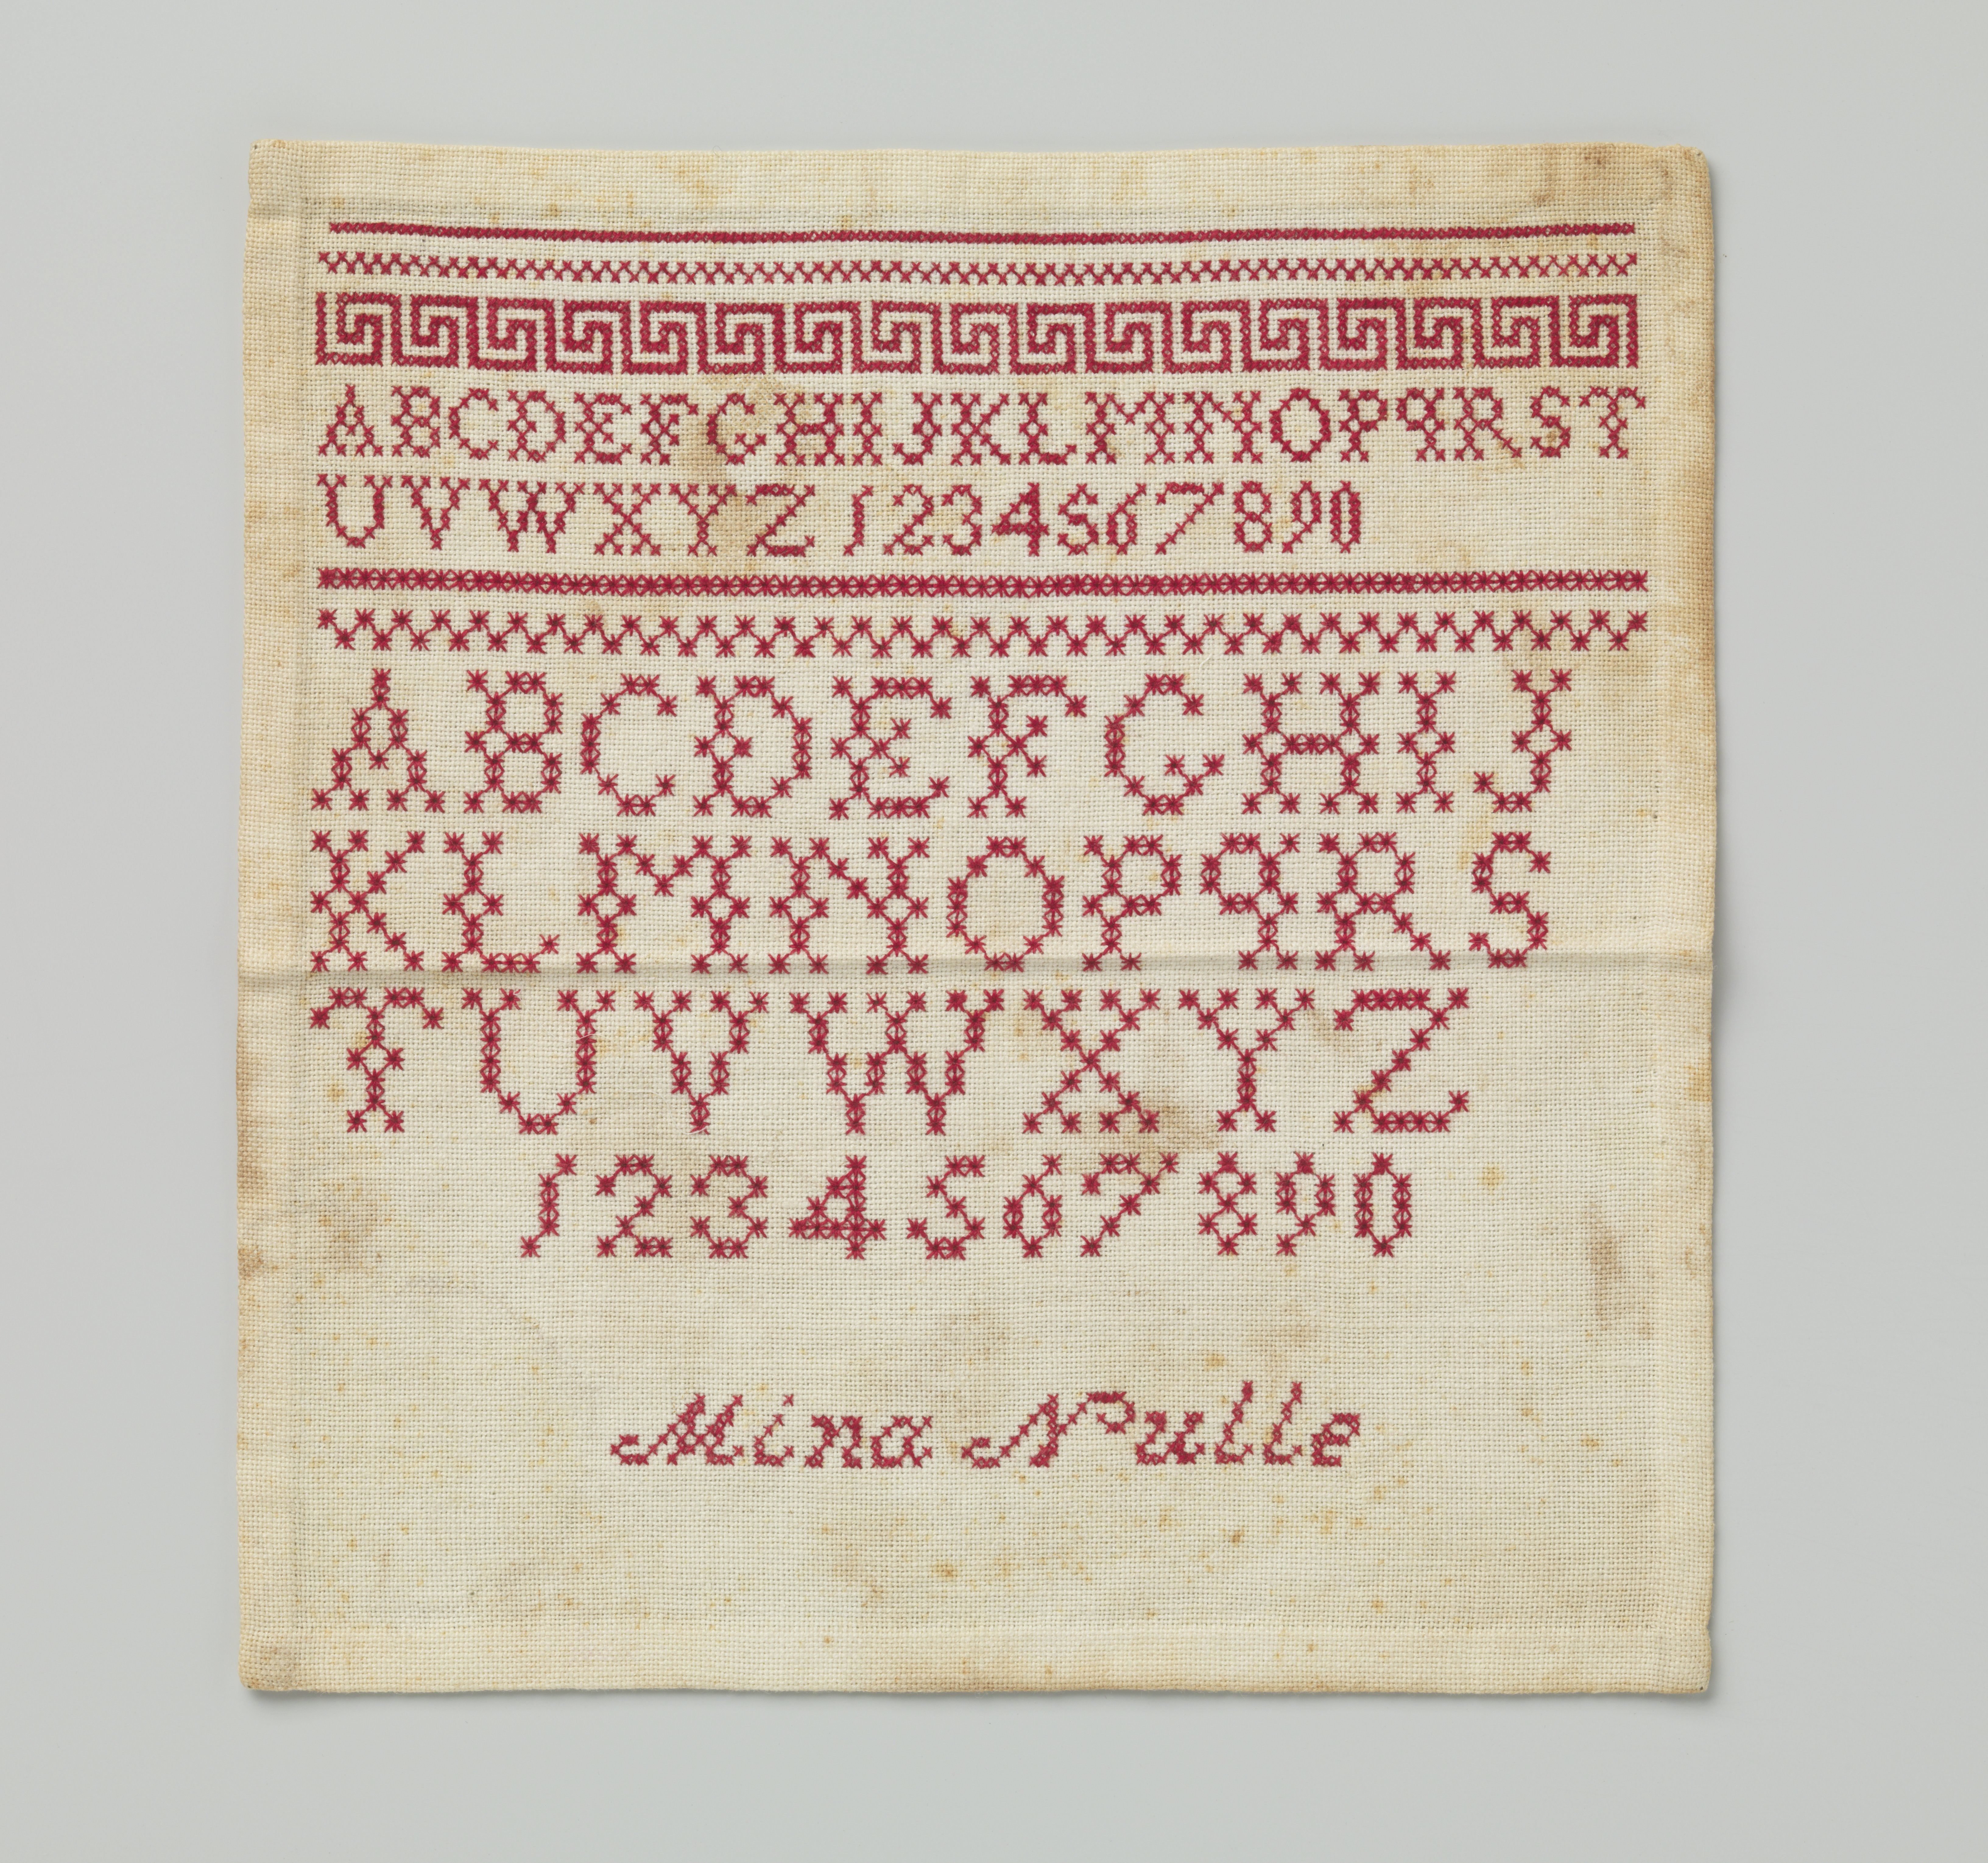 ABCDEFGHIJKLMNOPqRST
UVWXYZ 1234567890
ABCDEFGHIJ
KLMNOPqRS
TUVWXYZ
1234567890
Mina Nulle